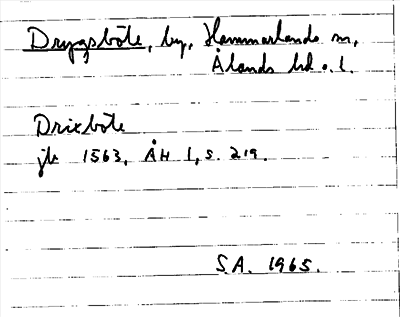 Dryggsböle, by, Hammarlands sn,
Ålands hd o. l.
Drixböle
jb 1563, ÅH I, s. 219.
S.A. 1965.